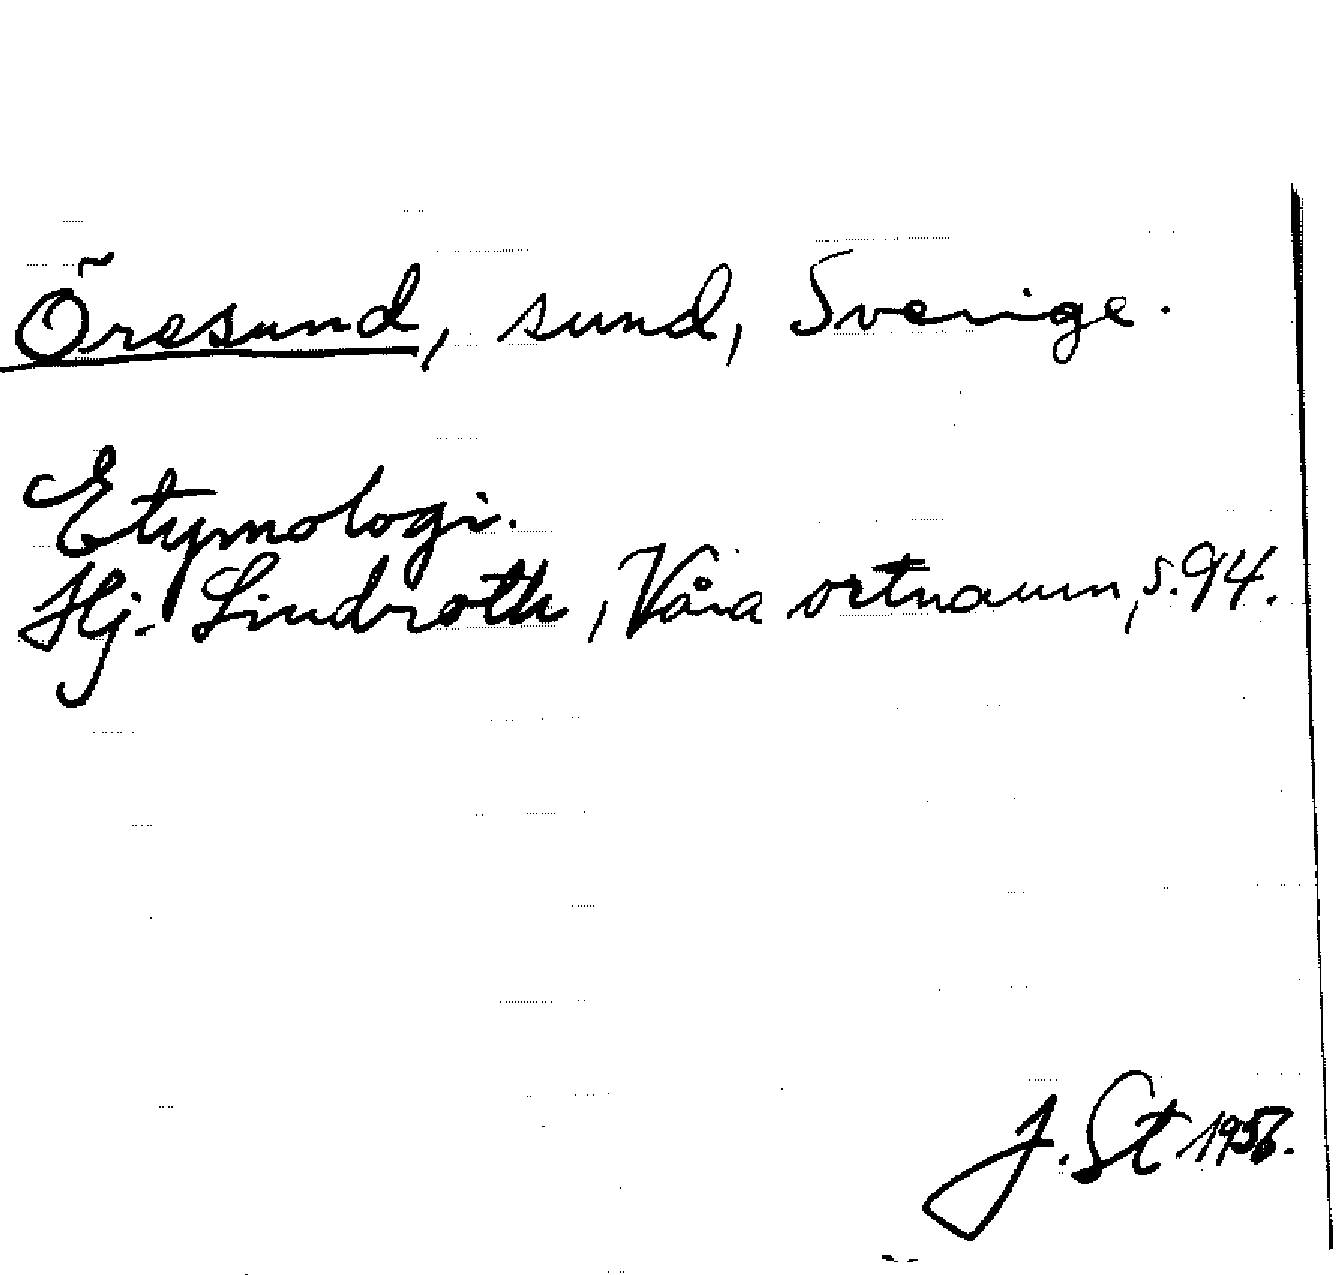 Öresund, sund, Sverige.
Etymologi.
Hj. Lindroth, Våra ortnamn, s. 94.
J. St